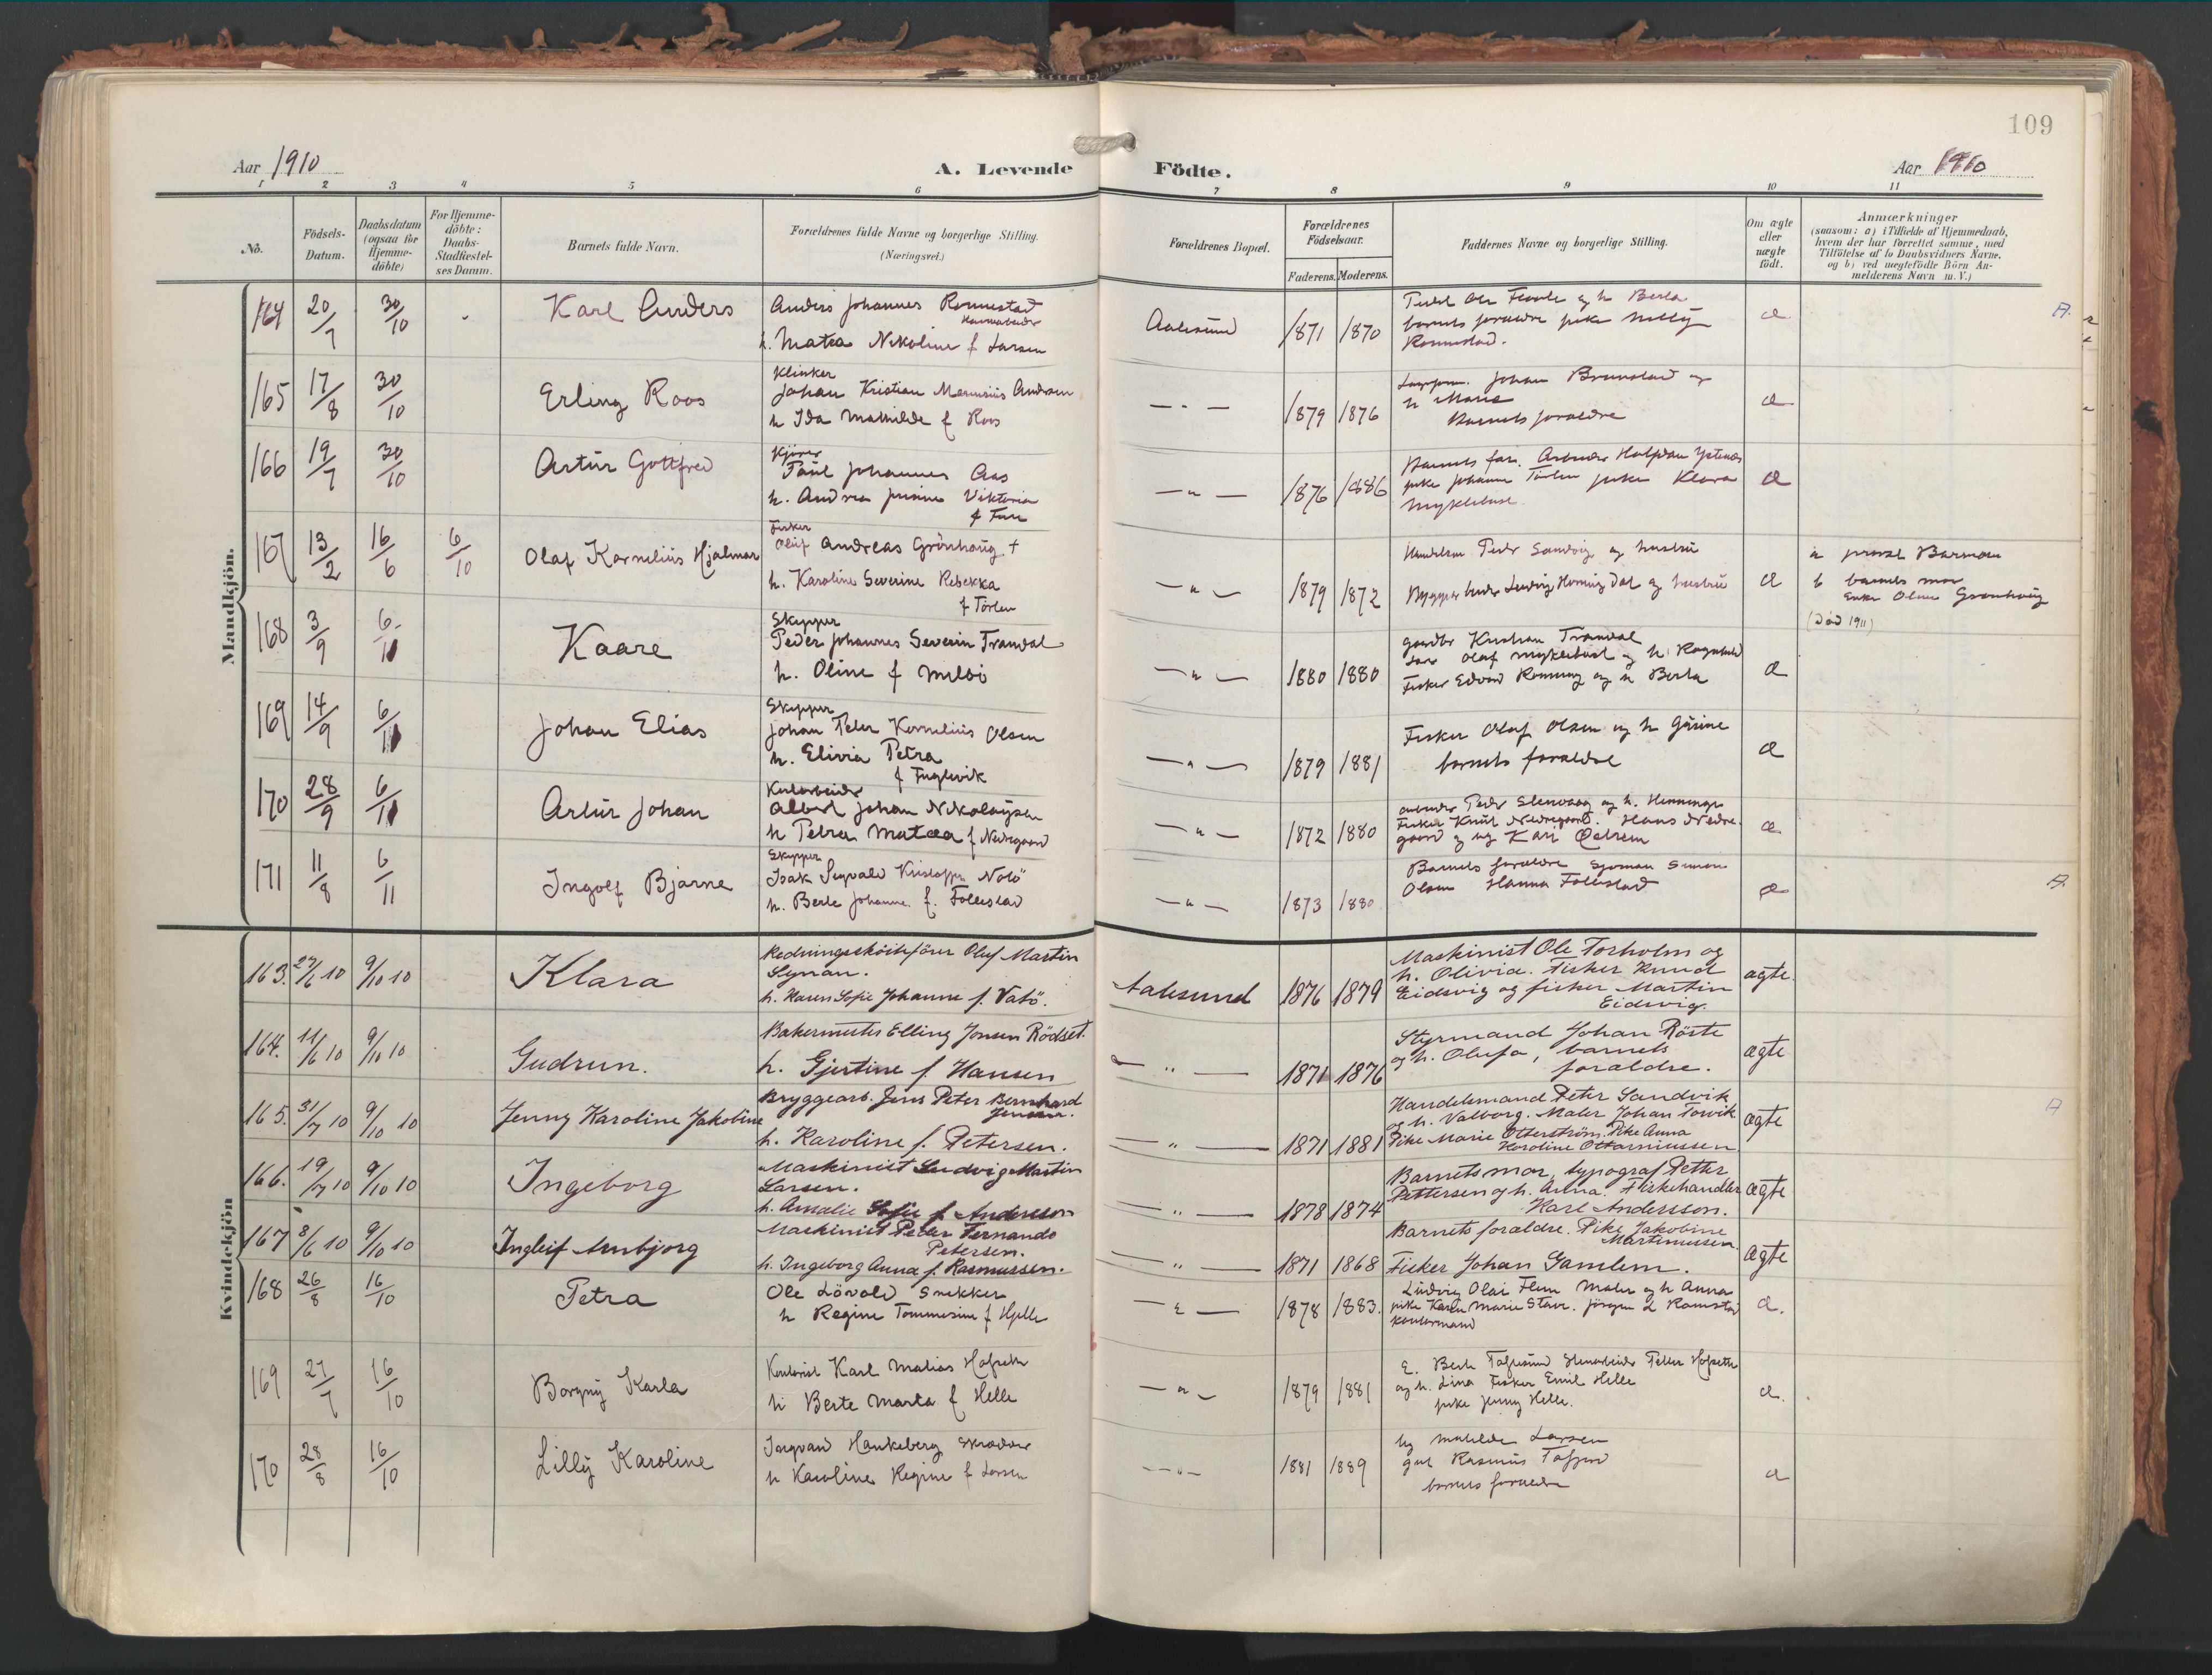 109
Aar 1910
A. Levende Födte.
Aar 1910
1 2 3 4 5 6 7 8 9 10 11
No.
Födsels-Datum.
Daabsdatum (ogsaa for Hjemme-döbte)
For Hjemme-döbte: Daabs-Stadfæstel-ses Datum.
Barnets fulde Navn.
Forældrenes fulde Navne og borgerlige Stilling.
(Næringsvei.)
Forældrenes Bopæl.
Forældrenes Födselsaar.
Faderens. Moderens.
Faddernes Navne og borgerlige Stilling.
Om ægte eller uægte födt.
Anmærkninger
(saasom: a) i Tilfælde af Hjemmedaab,
hvem der har forrettet samme, med
Tilföielse af to Daabsvidners Navne,
og b) ved uægtefödte Börn An-
melderens Navn m. V.)
Mandkjön.
164 20/7 30/10 Karl Anders
Anders Johannes Ronnestad
h. Matea Nikoline f Larsen
Aalesund 1871 1870
barnets foraldre pike Nelly
Ronnestad.
165 17/8 30/10 Erling Roos
Klinker
Johan Kristian Andersen
h Ida Mathilde f Roos
1879 1876
Johan Brunstad og
h Marie
Barnets foraldre
166 19/7 30/10 Artur Gottfred
Kjører
Paul Johannes Aas
h. Andrea Viktoria
1876 1886
Barnets far. Arbeider Halfdan
pike Johanne pike Klara
Myklebust
167 13/2 16/6 6/10 Olaf Kornelius Hjalmar
Fisker
Oluf Andreas Grönhaug +
h. Karoline Severine Rebekka
1879 1872
Peder Sandvig og hustru
Ludvig Horning Dal og hustru
b barnets mor
Enke Grønhaug
(død 1911)
168 3/9 6/11 Kaare
Skipper
Peder Johannes Severin Tranvdal
h. Oline f Melsö
1880 1880
Kristian Tranvdal
Olaf Myklebust og h. Ragnhild
Fisker Edvard Ronning og h Berta
169 14/9 6/11 Johan Elias
Skipper
Johan Peter Kornelius Olsen
h. Elivia Petra
f Fuglevik
1879 1881
Fisker Olaf Olsen og h Gusine
barnets foraldre
170 28/9 6/11 Artur Johan
Kularbeider
Albert Johan Nikolaysen
h Petra Matea f Nedregaard
1872 1880
arbeider Peder Stenvaag og h. Henninge
Fisker Knut Nedregaard. Hans Nedre-
gaard og Kari
171 11/8 6/11 Ingolf Bjarne
Skipper
Isak Sigvald Nolö
h. Berte Johanne f. Follestad
1873 1880
Barnets foraldre Sjoman Simon
Olsen Hanna Follestad
Kvindekjön
163. 27/6 10 9/10 10 Klara
Redningsskoitefører Oluf Martin
h. Karen Sofie Johanne f. Vatö.
Aalesund 1876 1879
Maskinist Ole Torholm og
h. Olivia. Fisker Knud
Eidsvig og fisker Martin
Eidsvig.
ægte.
164. 11/6 10 9/10 10 Gudrun.
Bakermester Elling Jonsen Rödset.
h. Gjertine f Hansen
1871 1876
Styrmand Johan Röste
og h. Olufa, barnets
foraldre.
ægte
165. 31/7 10 9/10 10 Jenny Karoline Jakobine
Bryggearb. Jens Peter Bernhard
Jensen.
h. Karoline f. Petersen.
1871 1881
Handelsmand Peter Sandvik
og h. Valborg. Maler Johan Torvik
Pike Marie Otterström. Pike Anna
Karoline Ottarniussen
ægte
166. 19/7 10 9/10 10 Ingeborg
Maskinist Ludvig Martin
Larsen.
h. Amalie Sofie f. Andersson
1878 1874
Barnets mor, typograf Petter
Pettersen og h. Anna. Fiskehandler
Karl Andersson.
ægte
167 8/6 10 9/10 10 Ingleif Arnbjorg
Maskinist Peder Fernando
Petersen.
h. Ingeborg Anna f. Rasmussen.
1871 1868
Barnets foraldre. Pike Jakobine
Martinussen
Fisker Johan Gamlem.
ægte
168 26/8 16/10 Petra
Ole Lövold Snekker
h Regine Tommesine f Hjelle
1878 1883.
Ludvig Olai Flem Maler og h Anna
pike Karen Marie Stavr. Jörgen L Ramstad
kontormand
169 27/7 16/10 Borgny Karla
Kontorist Karl Matias Hofseth
h Berte Marta f Helle
1879 1881
E. Berte Tafjesund Stenarbeider Petter Hofseth
og h. Lina Fisker Emil Helle
pike Jenny Helle.
170 28/8 16/10 Lilly Karoline
Ingvard Hankeberg Skrædder
h Karoline Regine f Larsen
1881 1889
Matilde Larsen
Rasmus Tafjord
barnets foraldre